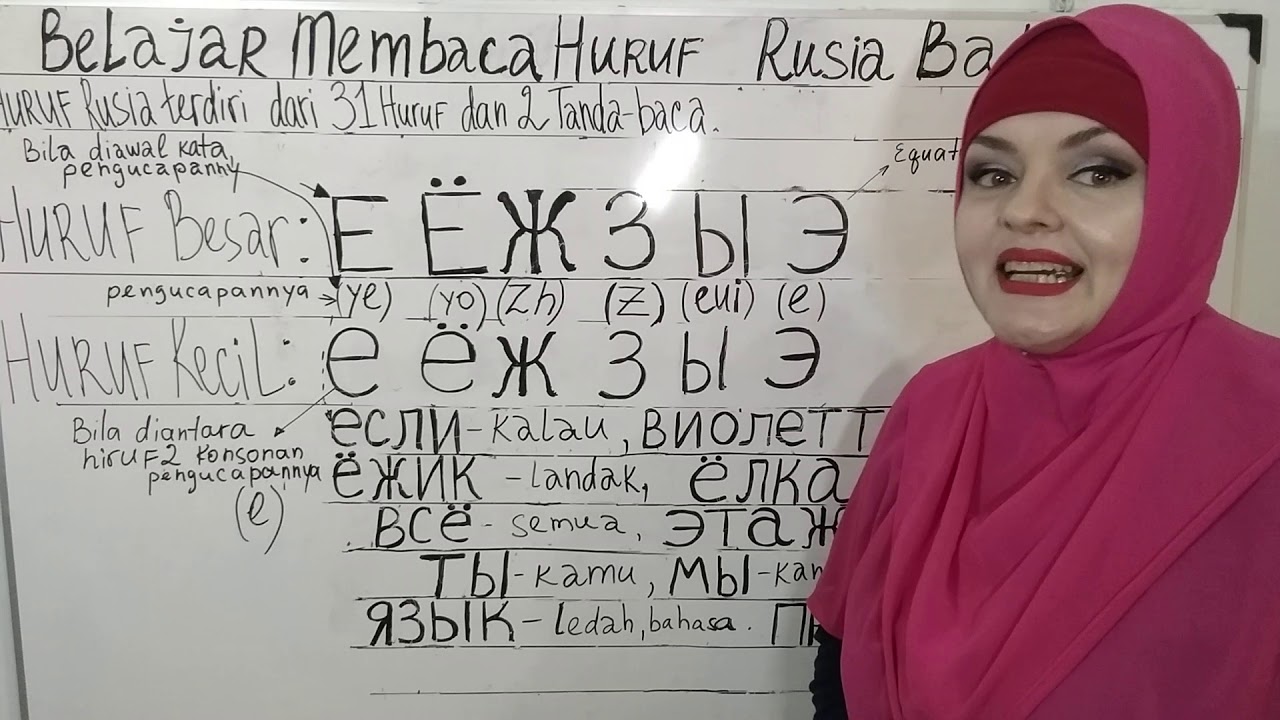 BELAJAR MEMBACA HURUF RUSIA
HURUF Rusia terdiri dari 31 Huruf dan 2 Tanda-baca.
Bila diawal kata,
pengucapanny
HURUF Besar: Е Ё Ж З Ы Э
pengucapannya (ye) (yo) (Zh) (Z) (eui) (e)
HURUF KeciL: е ё ж з ы э
Bila diantara
hiruf2 Konsonan
pengucapannya
(e)
если - kalau, ВИОЛЕТТ
ёжик - landak, ёлка
всё - semua, этаж
ты - kamu, мы -
язык - Ledah, bahasa.